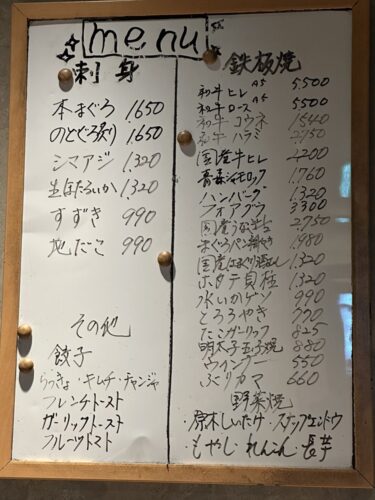 menu
刺身
本まぐろ 1,650
のどぐろ炙り 1,650
シマアジ 1,320
生ほたるいか 1,320
すずき 990
地だこ 990
その他
餃子
らっきょ・キムチ・チャンジャ
フレンチトースト
ガーリックトースト
フルーツトマト
鉄板焼
和牛ヒレ A5 5,500
和牛ロース A5 5,500
和牛コウネ 1,540
和牛ハラミ 2,750
国産牛ヒレ 2,200
青森シャモロック 1,760
ハンバーグ 1,320
フォアグラ 3,300
国産うなぎ 2,750
まぐろ 1,980
国産はまぐり 1,320
ホタテ貝柱 1,320
水いかゲソ 990
とろろやき 770
たこガーリック 825
明太子玉子焼 880
ウインナー 550
ぶりカマ 660
野菜焼
・原木しいたけ・スナップエンドウ
・もやし・れんこん・長芋